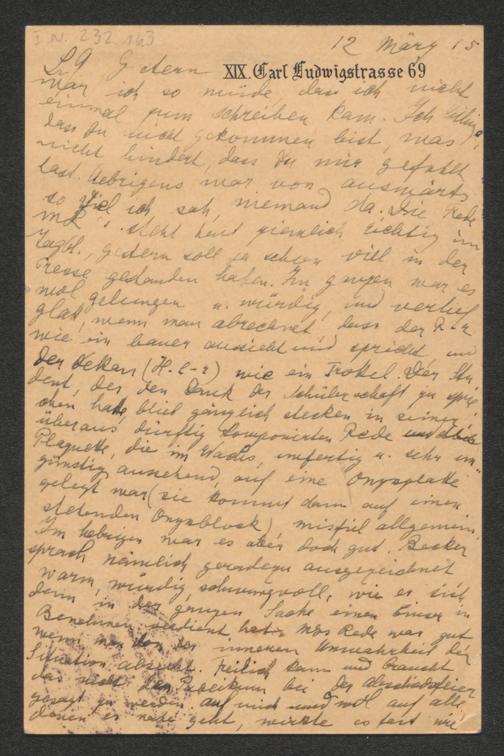 I.N. 232.163
12 März 15
XIX. Carl Ludwigstrasse 69
L.A. Gestern
war ich so müde, dass ich nicht
einmal zum schreiben kam. Ich
dass Du nicht gekommen bist, was
nicht hindert, dass Du mir gefehlt
hast. Uebrigens war von auswärts
so viel ich sah, niemand da. Die Rede
steht heut ziemlich richtig im
Tagbl., gestern soll ja schon viel in der
Presse gestanden haben. Im ganzen war es
wol gelungen u. würdig, und verlief
glatt, wenn man abrechnet dass der R-r
wie ein bauer aussieht und spricht, und
der Dekan (H. E-r) wie ein Trottel. Der Stu
dent, der den Dank der Schülerschaft zu spre
chen hatte, blieb gänzlich stecken in seiner
überaus dürftig komponirten Rede und die
Plaquette, die im Wachs, unfertig u. sehr un
günstig aussehend, auf eine Onyxplatte
gelegt war (sie kommt dann auf einen
stehenden Onyxblock), misfiel allgemein.
Im uebrigen war es aber doch gut. Becker
sprach nämlich geradezu ausgezeichnet,
warm, würdig, schwungvoll, wie es sich
denn in der ganzen Sache einen
Benehmen verdient hat. Rede war gut
wenn man von der inneren Unwahrheit der
Situation absieht. Freilich kann und braucht
das nicht dem Publikum bei der Abschiedsfeier
gesagt zu werden. Auf mich und wol auf alle
denen es nahe geht, wirkte es fast wie